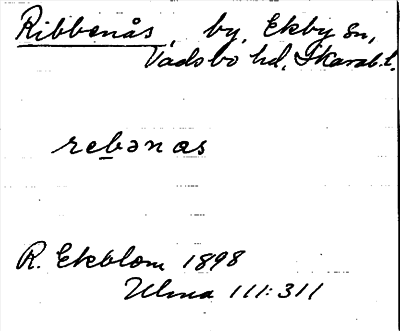 Ribbenås, by, Ekby sn,
Vadsbo hd, Skarab.l.
rebənas
R. Ekblom 1898
Ulma 111:311